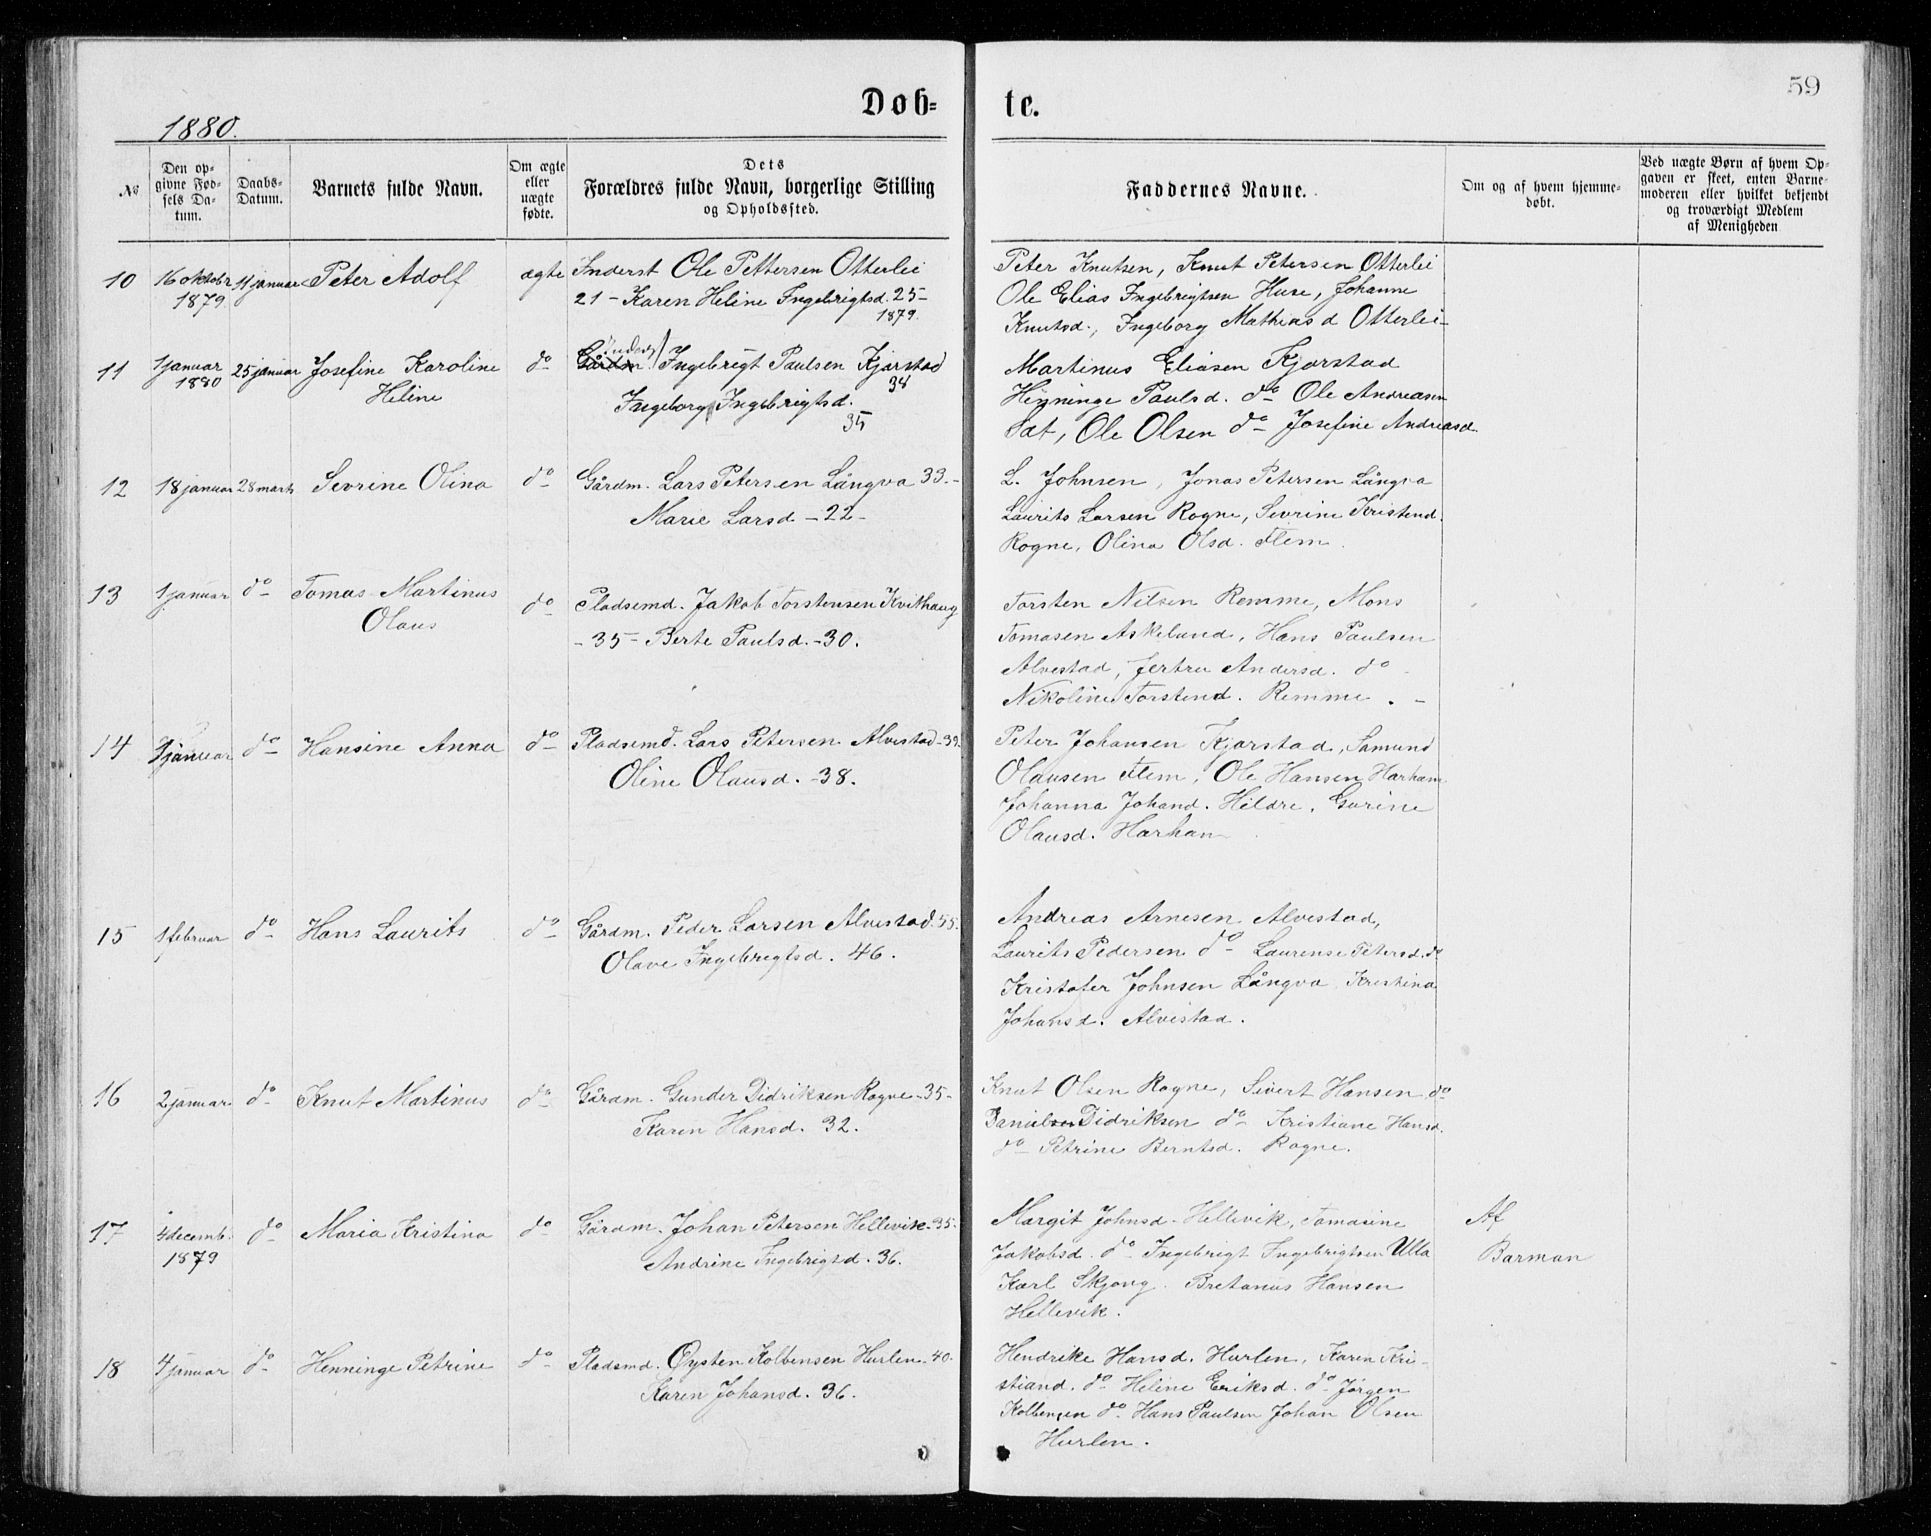 59
Døb-
te.
1880.
No
Den op-
givne Fød-
sels Da-
tum.
Daabs-
Datum.
Barnets fulde Navn.
Om ægte
eller
uægte
fødte.
Dets
Forældres fulde Navn, borgerlige Stilling
og Opholdssted.
Faddernes Navne.
Om og af hvem hjemme-
døbt.
Ved uægte Børn af hvem Op-
gaven er skeet, enten Barne-
moderen eller hvilket bekjendt
og troværdigt Medlem
af Menigheden
10
16 oktobr
1879
11 januar
Peter Adolf
ægte
Inderst Ole Pettersen Otterlei
21 - Karen Heline Ingebrigtsd. 25-
1879.
Peter Knutsen, Knut Petersen Otterlei
Ole Elias Ingebreigtsen Huse, Johanne
Knutsd., Ingeborg Mathias d Otterlei-
11
1 januar
1880
25 januar
Josefine Karoline
Heline
do
Inderst
Gårdm Ingebrigt Paulsen Kjørstad
34
Ingeborg Ingebrigtsd.
35
Martinus Eliasen Kjørstad
Henninge Paulsd. do Ole Andreasen
Sæt, Ole Olsen do Josefine Andreasd.
12
18 januar
28 marts
Sevrine Olina
do
Gårdm. Lars Petersen Långva 33.-
Marie Larsd - 22-
L. Johnsen, Jonas Petersen Långva
Laurits Larsen Rogne, Sevrine Kristend.
Rogne, Olina Olsd. Flem.
13
1 januar
do
Tomas Martinus
Olaus
do
Pladsemd. Jakob Torstensen Kvithaug
- 35 - Berte Paulsd. - 30.
Torsten Nilsen Remme, Mons
Tomasen Askelund, Hans Paulsen
Alvestad, Jertru Andersd. do
Nikoline Torstend. Remme. -
14
januar
do
Hansine Anna
do
Pladsemd. Lars Petersen Alvestad - 39-
Oline Olausd. - 38.
Peter Johansen Kjørstad, Samund
Olausen Flem, Ole Hansen Harham
Johanna Johand. Hildre, Gurine
Olausd. Harham
15
1 februar
do
Hans Laurits
do
Gårdm. Peder Larsen Alvestad. 55.
Olave Ingebrigtsd. 46.
Andreas Arnesen Alvestad,
Laurits Pedersen do Laurense Petersd. do
Kristofer Johnsen Långva, Kristina
Johansd. Alvestad.
16
2 januar
do
Knut Martinus
do
Gårdm. Gunder Didriksen Rogne - 35-
Karen Hansd. 32.
Knut Olsen Rogne, Sivert Hansen do
Danielsen Didriksen do Kristiane Hansd.
do Petrine Berntsd. Rogne.
17
4 decemb.
1879
do
Maria Kristina
do
Gårdm. Johan Petersen Hellevik - 35.
Andrine Ingebrigtsd. 36.
Margit Johnsd. Hellevik, Tomasine
Jakobsd. do Ingebrigt Ingebrigtsen Ulla
Karl Skjong. Bretanus Hansen
Hellevik.
Af
Barman
18
4 januar
do
Henninge Petrine
do
Pladsmd. Øysten Kolbensen Hurlen - 40.
Karen Johansd. 36.
Hendrike Hansd. Hurlen, Karen Kri-
stiand. do Heline Eriksd. do Jørgen
Kolbensen do Hans Paulsen Johan Olsen
Hurlen.